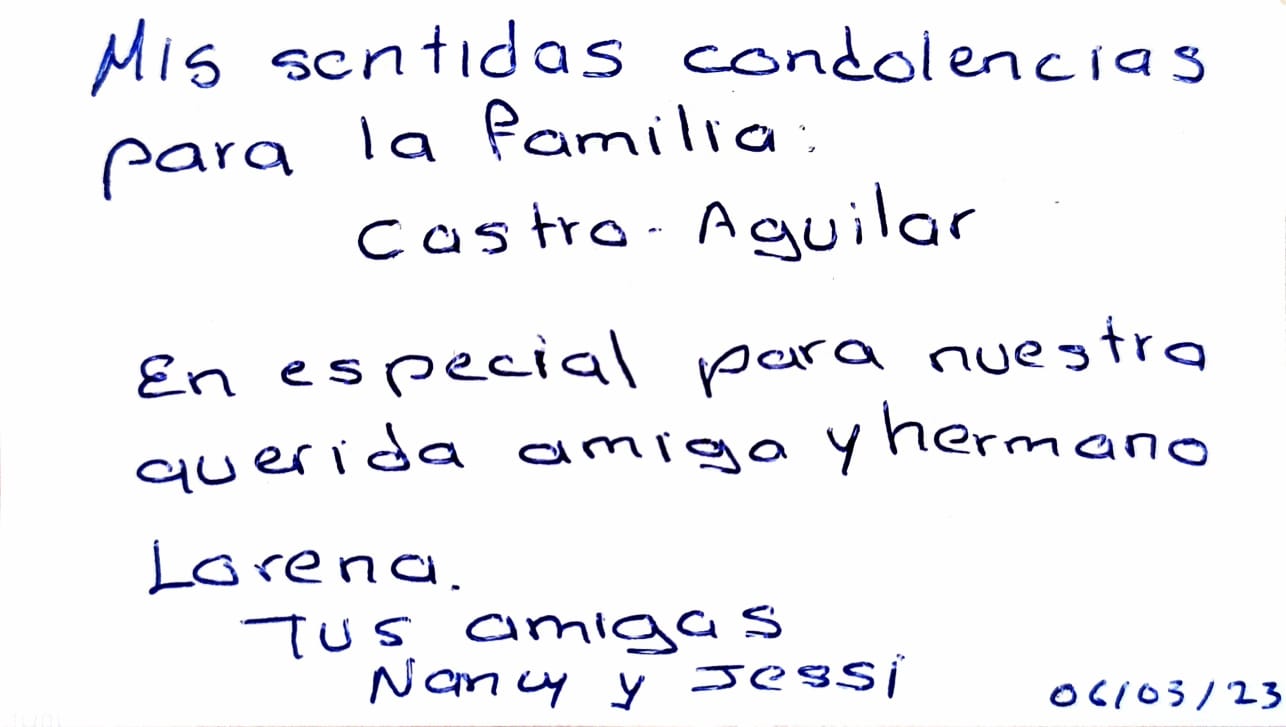 Mis sentidas condolencias
para la familia:
Castro - Aguilar
En especial para nuestra
querida amiga y hermano
Lorena.
Tus amigas
Nancy y Jessi
06/03/23